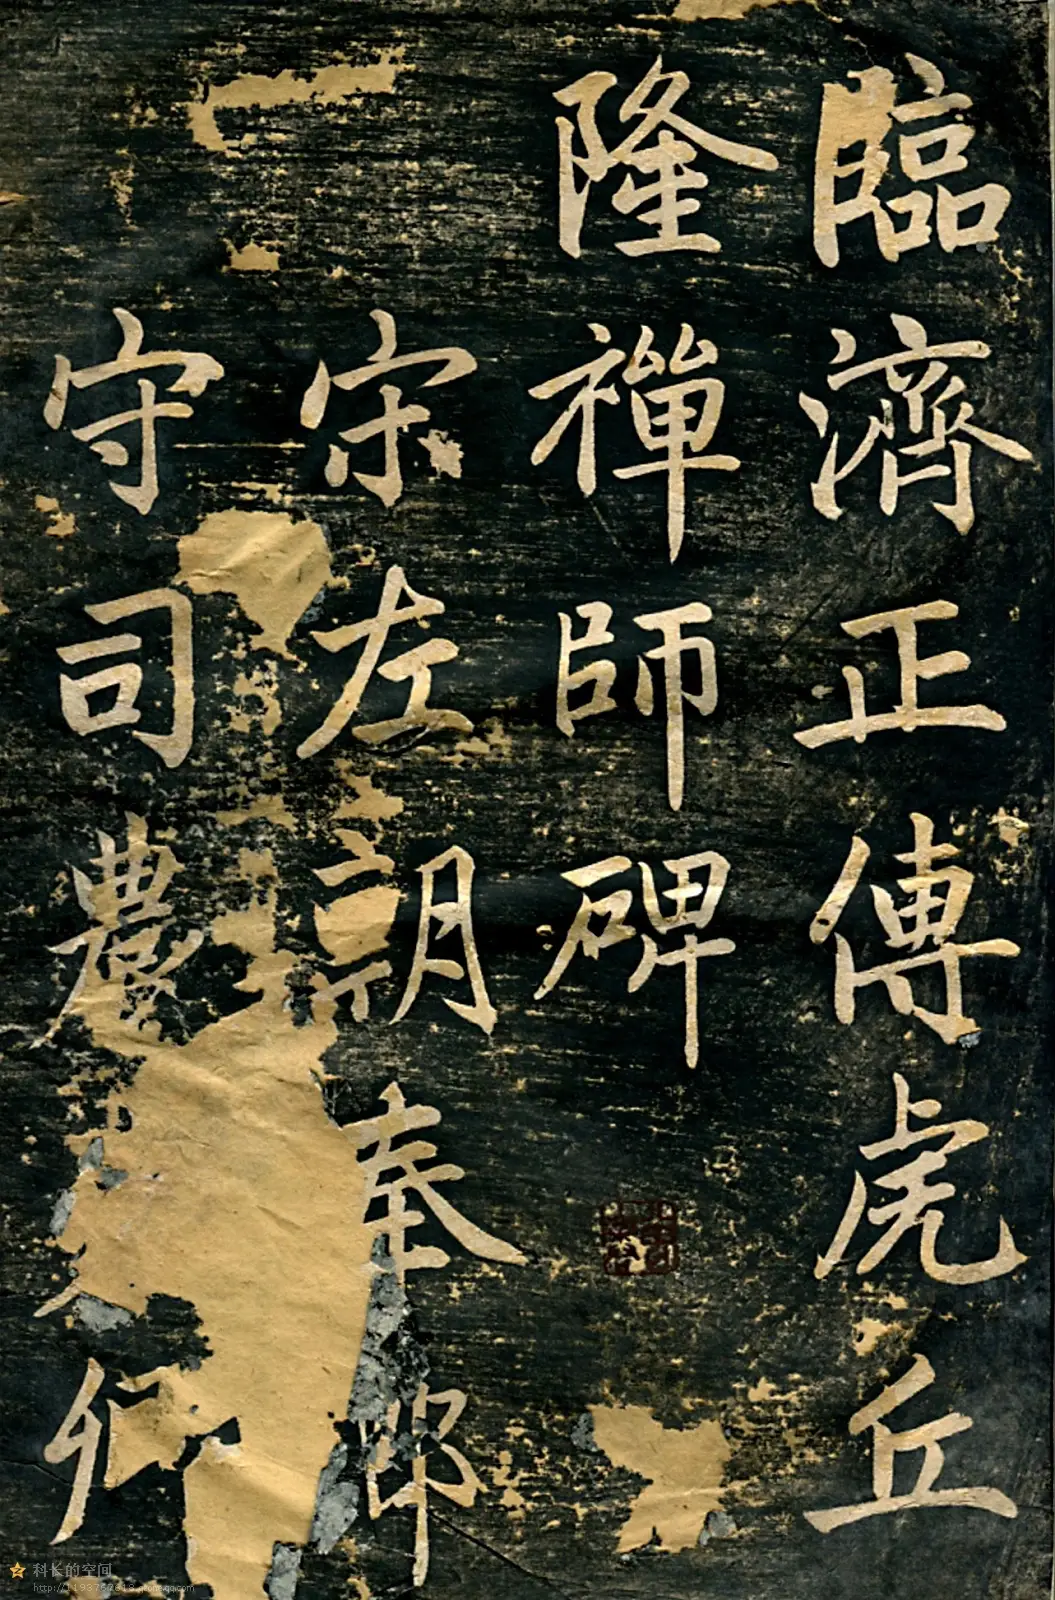 臨濟正傳虎丘
隆禪師碑
宋左朝奉郎
守司農卿
科长的空间